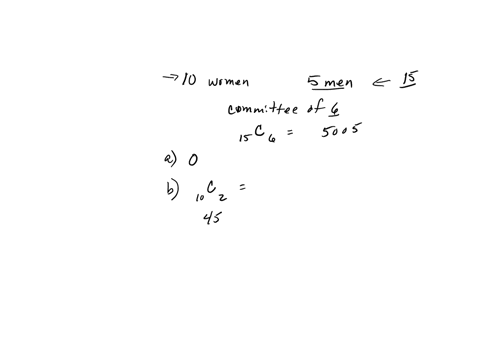 → 10 women 5 men ← 15
committee of 6
₁₅C₆ = 5005
a) 0
b) ₁₀C₂ =
45